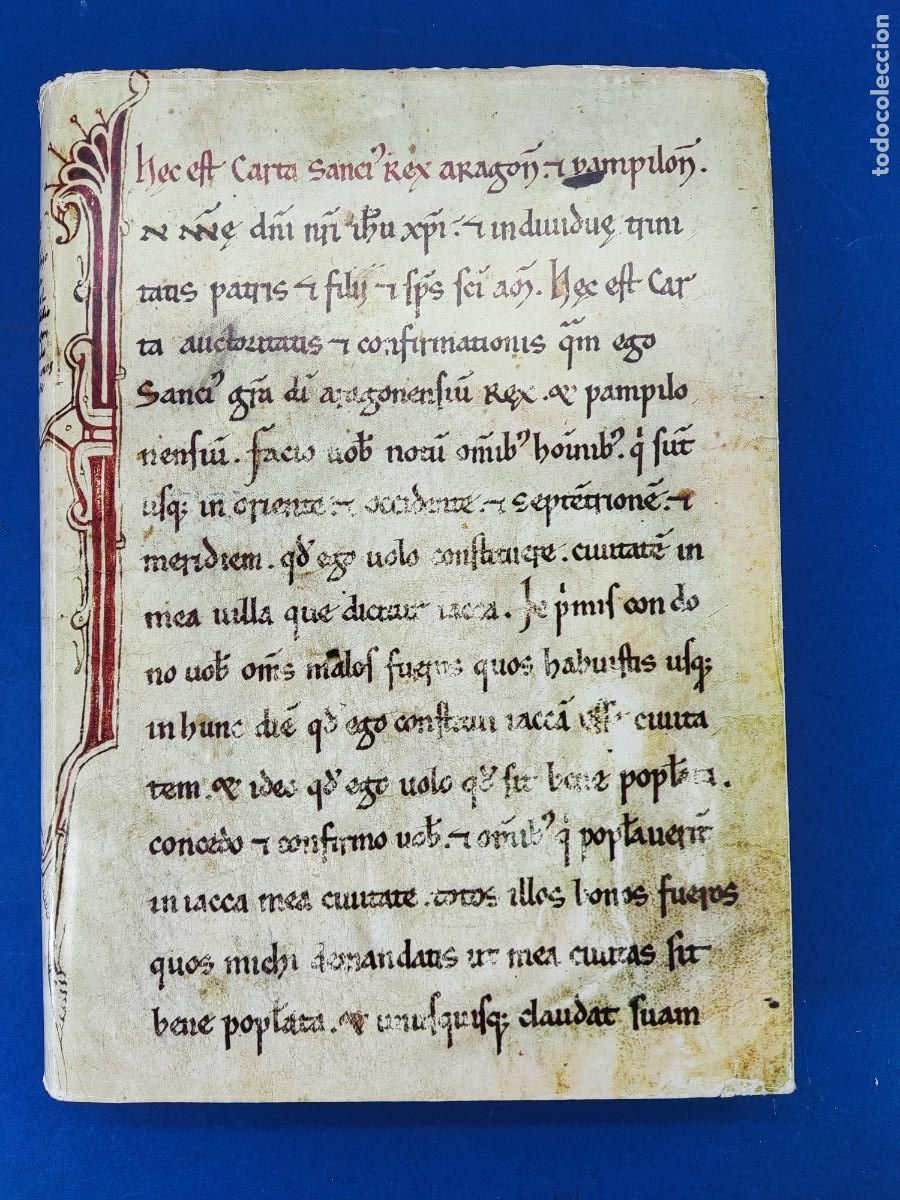 hęc est Carta Sanciꝰ Rex aragoñ. ⁊ pampiloñ.
N nñę dñi nr̃i ih̃u xp̃i. ⁊ indiuiduę trini
tatis patris ⁊ filii ⁊ sp̃s sc̃i am̃. hęc est Car
ta auctoritatis ⁊ confirmationis qm̃ ego
Sanciꝰ gr̃a di aragonensiũ Rex. et pampilo
nensiũ. facio uob̃ notũ om̃ibꝰ hoĩnibꝰ. qi sũt
usq; in oriente ⁊ occidente ⁊ septẽtrionẽ. ⁊
meridiem. qđ ego uolo constituere. ciuitatẽ in
mea uilla que dicitur iacca. pⁱmis condo
no uob̃ om̃s malos fueros quos habuistis usq;
in hunc diẽ qđ ego constitui iaccã ciuita
tem. et ideo qđ ego uolo qđ sit bene popłata.
concordo ⁊ confirmo uob̃. ⁊ om̃ibꝰ qi popłauerĩt
in iacca mea ciuitate. totos illos bonos fueros
quos michi demandatis ut mea ciuitas sit
bene popłata. et unusquisq; claudat suam
todocoleccion